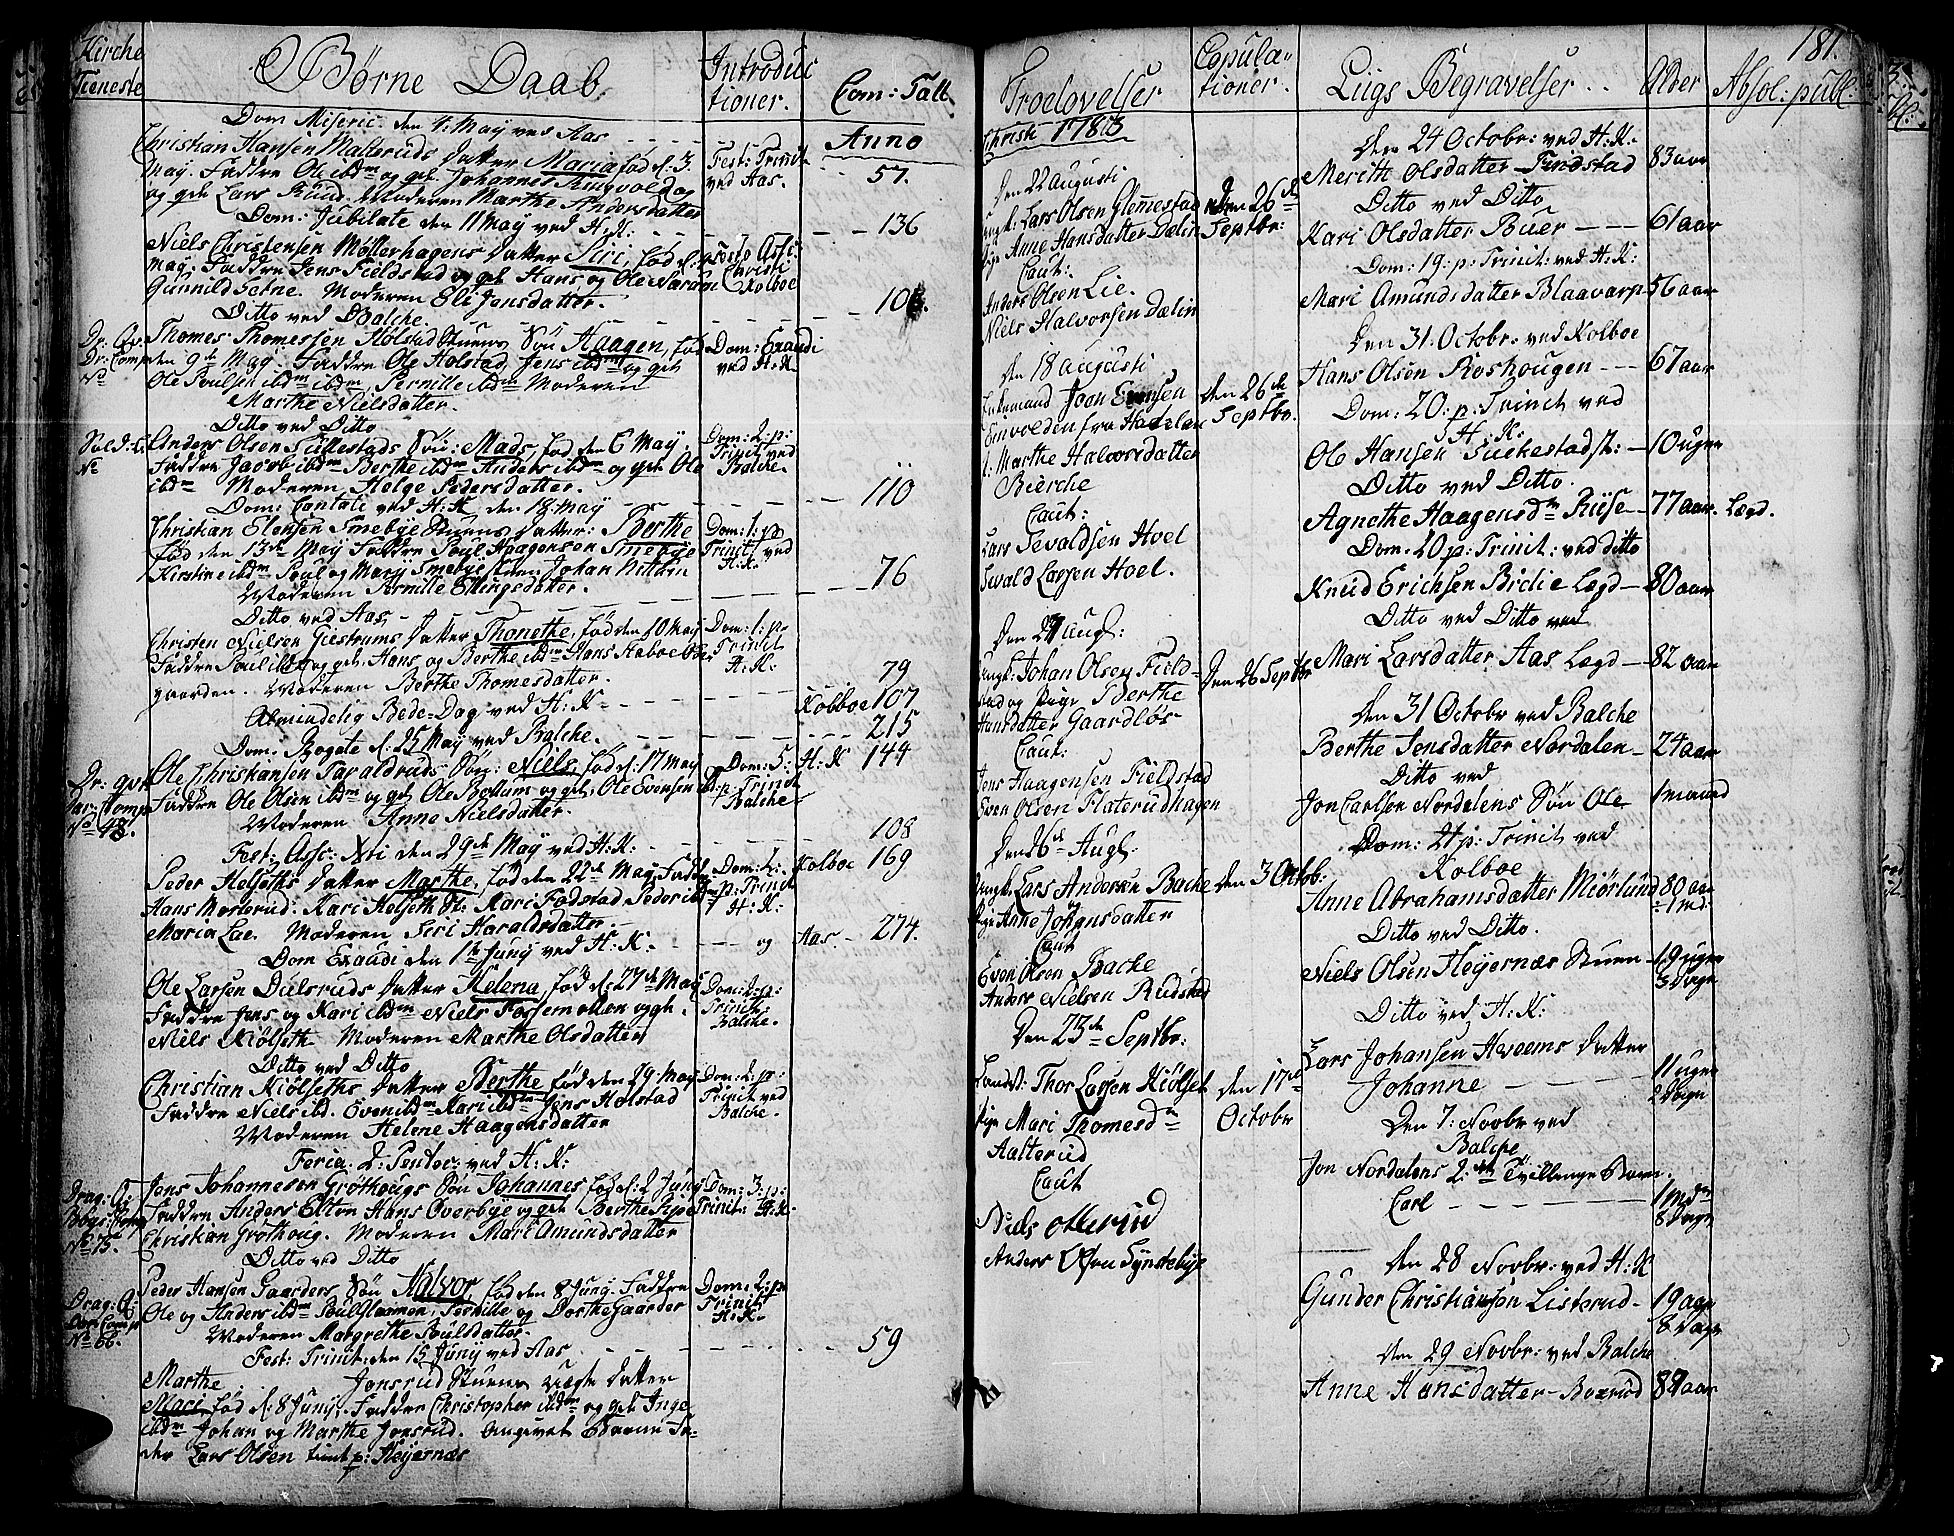 Kirche
Tieneste
Børne Daab
Introduc
tioner.
Com: Tall
Anno
Dom Miseric. den 4. May ved Aas
Christian Hansen Malteruds Datter Maria fød d. 3.
May. Faddre Ole ibdm og get Johannes Ringvold og
og get Lars Ruud. Moderen Marthe Andersdatter
Fest: Trinit
ved Aas.
57.
Dom: Jubilate den 11 May ved H: K:
136
Niels Christensen Møllerhagens Datter Siri, fød d.
May. Faddre Jens Fieldstad og get Hans og Ole Narum
Gunnild Setne. Moderen Eli Jensdatter.
Festo Asc:
Christi
Kolboe
Ditto ved Balche.
Thomes Thomessen Holstad Stuens Søn Haagen, fød
den 9de May. Faddre Ole Holstad, Jens ibdm og get
Ole Poulsen ibdm ibdm, Pernille ibdm Moderen
Marthe Nielsdatter.
Dom: Exaudi
ved H: K.
Ditto ved Ditto
Anders Olsen Tullestads Søn: Mads, fød den 6 May.
Faddre Jacob ibdm Berthe ibdm Anders ibdm og get Ole
ibdm Moderen Helge Pedersdatter.
Dom: 2. p:
Trinit ved
Balche.
110
Dom: Cantati ved H: K den 18. May
Christian Elensen Smebye Stuens Datter: Berthe
fød den 13de May Faddre Poul Haagensen Smebye
Kirstine ibdm Poul og Mary Smebye
Moderen Pernille Ellingsdatter.
Dom: 1: p
Trinit ved
H: K.
76
Ditto ved Aas.
Christen Nielsen Giestrums Datter Thonethe, fød den 10 May
Faddre Poul ibdm og get. Hans og Berthe ibdm
gaarden. Moderen Berthe Thomesdatter.
Dom: 1: p.
Trinit
H: K:
79
Almindelig Bede-Dag ved H: K
Kolboe 107
215
Dom. Rogate d. 25 May ved Balche.
H: K 144
Ole Christiansen Taraldruds Søn: Niels, fød d. 17 May
Faddre Ole Olsen ibdm og get Ole Bottum og get, Ole Evensen ibd:
Moderen Anne Nielsdatter.
No 48.
Dom: 5:
p. Trinit
Balche
108
Fest: Asc: Xsti den 29de May ved H: K:
Kolboe 169
Peder Helseths Datter Marthe, fød den 22de May. Faddre
Hans Morterud: Kari Helseth Ot: Kari Fodstad Peder ibd
Maria Lae. Moderen Siri Haraldsdatter
Dom: 2:
p: Trinit
H: K:
Dom Exaudi den 1te Juny ved H: K.
og Aas. 274.
Ole Larsen Dulsruds Datter Helena, fød d: 27de May
Faddre Jens og Kari ibdm Niels Fossemollen og get.
Niels Kiølseth Moderen Marthe Olsdatter
Dom: 2. p:
Trinit:
Balche.
Ditto ved Ditto
Christian Kiølseths Datter Berthe fød den 29. May
Faddre Niels ibd. Even ibdm Kari ibdm Jens Holstad
Moderen Helene Haagensdatter
Dom: 2: p:
Trinit ved
Balche.
Feria. 2. Pentec: ved H: K:
Jens Johannesen Grøthougs Søn Johannes fød d. 2 Juny
Faddre Anders Elton Hans Overbye og get Berthe Pipe
Christian Grøthoug. Moderen Mari Amundsdatter
No 75.
Dom: 3. p:
Trinit: H: K:
Ditto ved Ditto
Peder Hansen Gaarders Søn Halvor, fød den 8 Juny. Faddre
Ole og Anders ibdm Poul Glaamen, Pernille og Dorthe Gaarder
Moderen Margrethe Poulsdatter.
No 66.
Dom: 2: p
Trinit
H: K.
Fest: Trinit: den 15 Juny ved Aas
59
Marthe Jonsrud Stuens uægte Datter
Mari fød d. 8 Juny. Faddre Christopher ibdm og get Inge
ibdm Johan og Marthe Jonsrud. Angivet Barne Fa-
der Lars Olsen tient p: Heyernæs
Troelovelser
Copula-
tioner.
Christi 1783
Den 22 Augusti
Ungk: Lars Olsen Glemestad
Pige Anne Hansdatter Dælin
Caut:
Anders Olsen Lie.
Niels Halvorsen Dælin
Den 26de
Septbr:
Den 18 Augusti
Enkemand Joon Evensen
Emvolden fra Hadelan
Marthe Halvorsdatter
Bierche
Caut:
Lars Sevaldsen Hoel
Sewald Larsen Hoel.
Den 26de
Septbr.
Den 27 Augl:
Ungk: Johan Olsen Field-
stad og Pige Berthe
Hansdatter Gaardløs
Caut:
Jens Haagensen Fieldstad
Even Olsen Flaterudhagen
Den 26 Septbr
Den 26de Augl:
Ungk: Lars Andersen Backe
Pige Anne Johansdatter
Caut
Even Olsen Backe
Anders Nielsen Rudstad
den 3 Octob:
Den 23de Septbr.
Landst: Thor Larsen Kiølset
Pige Mari Thomesdtr
Aalterud
Caut
Niels Olterud
Anders Olsen Lyndebye
den 17de
October
Liigs Begravelser
Alder
Absol: publ:
181.
Den 24 Octobr: ved H: K:
Merithe Olsdatter Findstad 83 aar
Ditto ved Ditto
Kari Olsdatter Buer 61 aar
Dom: 19: p: Trinit: ved H: K:
Mari Amundsdatter Blaavarp 56 aar
Den 31. Octobr. ved Kolboe
Hans Olsen Roshougen 67 aar
Dom: 20: p: Trinit ved
H: K.
Ole Hansen Tuckestadst: 10 uger
Ditto ved Ditto.
Agnethe Haagensdtr Riise 77 aar. Lægd.
Dom. 20 p: Trinit: ved ditto
Knud Erichsen Birlie Lægd 80 aar
Ditto ved Ditto ved
Mari Larsdatter Aas Lægd 82 aar
Den 31 Octobr ved Balche
Berthe Jensdatter Nordalen 24 aar
Ditto ved
Jon Carlsen Nordalens Søn Ole 1 maaned
Dom: 21 p: Trinit ved
Kolboe
Anne Abrahamsdatter Miørlund 80 aar
1 md:
Ditto ved Ditto.
Niels Olsen Heyernæs Stuen 19 uger
3 Dage
Ditto ved H: K:
Lars Johansen Hveems Datter
Johanne 11 uger
2 Dage
Den 7. Novbr ved
Balche
Jon Nordalens 2: Tvillinge Barn.
Carl 1 Md
8 Dage
Den 28 Novbr: ved H: K
Gunder Christiansen Listerud. 19 aar
8 Dage
Den 29 Novbr: ved Balche
Anne Hansdatter Boxrud 87 aar